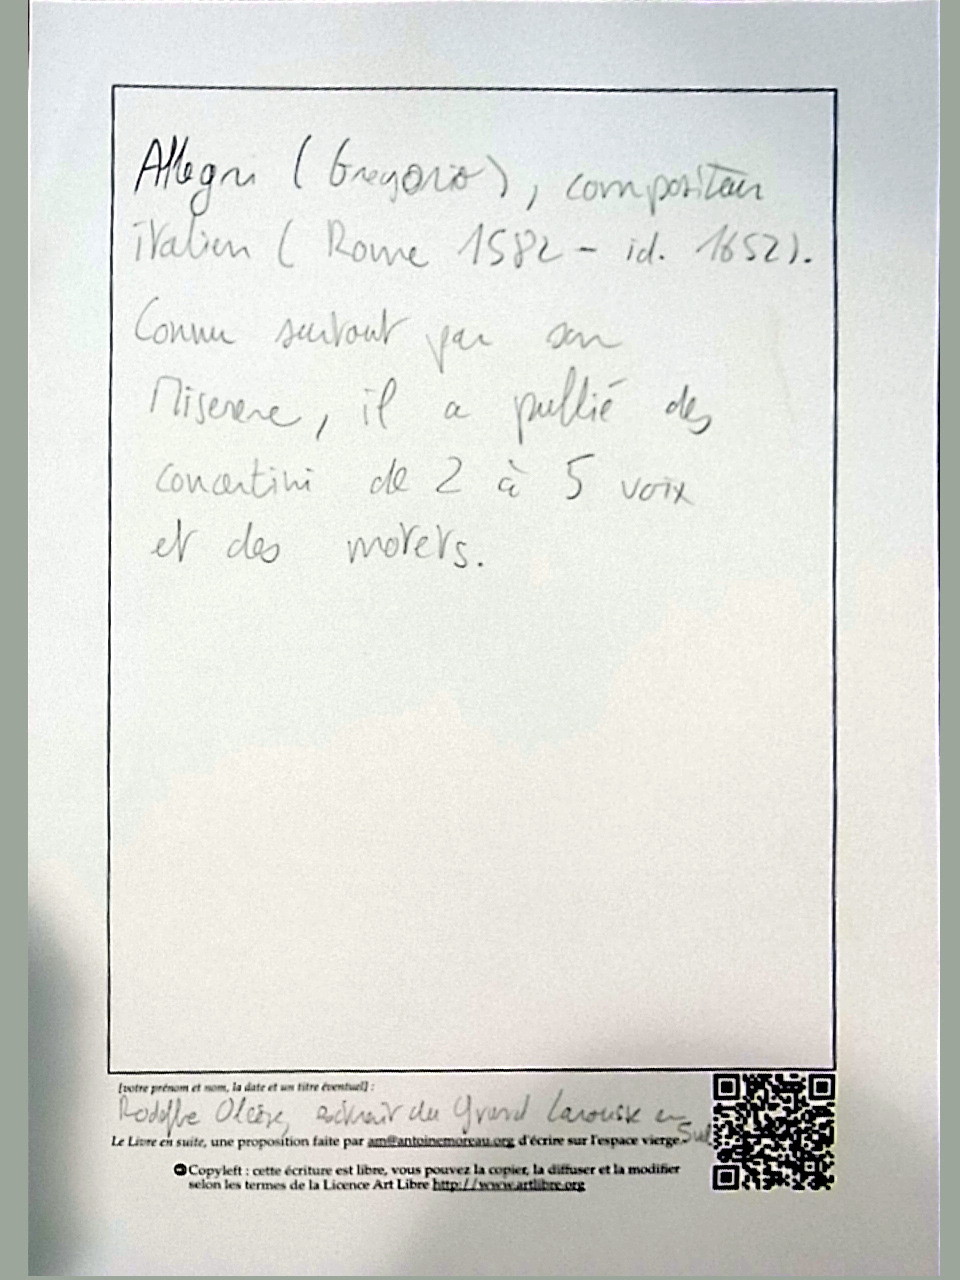 Allegri (Gregorio), compositeur
italien (Rome 1582 - id. 1652).
Connu surtout par son
Miserere, il a publié des
concertini de 2 à 5 voix
et des motets.
[votre prénom et nom, la date et un titre éventuel] :
Rodolphe Olcèse, extrait du Grand Larousse en
Le Livre en suite, une proposition faite par am@antoinemoreau.org d'écrire sur l'espace vierge.
Copyleft : cette écriture est libre, vous pouvez la copier, la diffuser et la modifier
selon les termes de la Licence Art Libre http://www.artlibre.org